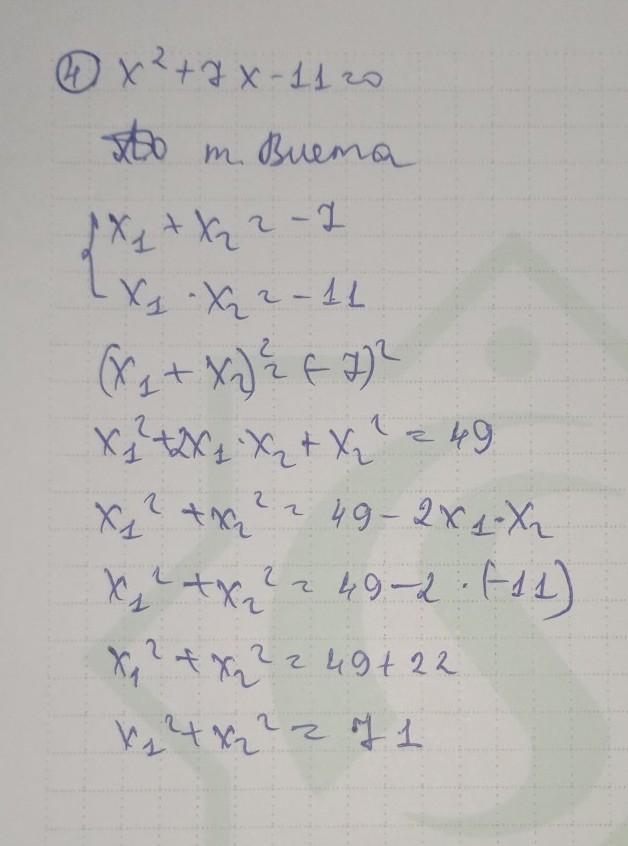 ④ x² + 7x - 11 = 0
т. Виета
{ x₁ + x₂ = -7
x₁ · x₂ = -11
(x₁ + x₂)² = (-7)²
x₁² + 2x₁·x₂ + x₂² = 49
x₁² + x₂² = 49 - 2x₁·x₂
x₁² + x₂² = 49 - 2 · (-11)
x₁² + x₂² = 49 + 22
x₁² + x₂² = 71